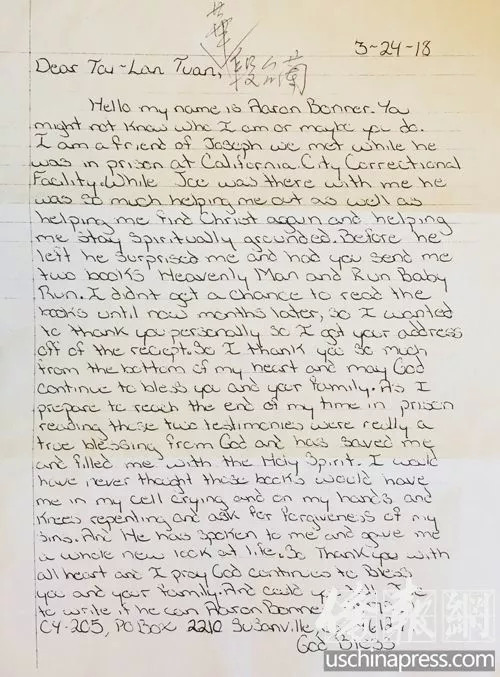 華
段台蘭
3-24-18
Dear Tai-Lan Tuan,
Hello my name is Aaron Bonner. You
might not know who I am or maybe you do.
I am a friend of Joseph we met while he
was in prison at California City Correctional
Facility. While Joe was there with me he
was so much helping me out as well as
helping me find Christ again and helping
me stay spiritually grounded. Before he
left he surprised me and had you send me
two books Heavenly Man and Run Baby
Run. I didn't get a chance to read the
books until now months later, so I wanted
to thank you personally so I got your address
off of the reciept. So I thank you so much
from the bottom of my heart and may God
continue to bless you and your family. As I
prepare to reach the end of my time in prison
reading these two testimonies were really a
true blessing from God and has saved me
and filled me with the Holy Spirit. I would
have never thought these books would have
me in my cell crying and on my hands and
knees repenting and ask for forgiveness of my
sins. And He has spoken to me and gave me
a whole new look at life. So Thank you with
all heart and I pray God continues to Bless
you and your family. And could you
to write if he can Aaron Bonner
C4-205, PO Box 2210 Susanville,
God Bless
僑報網
uschinapress.com